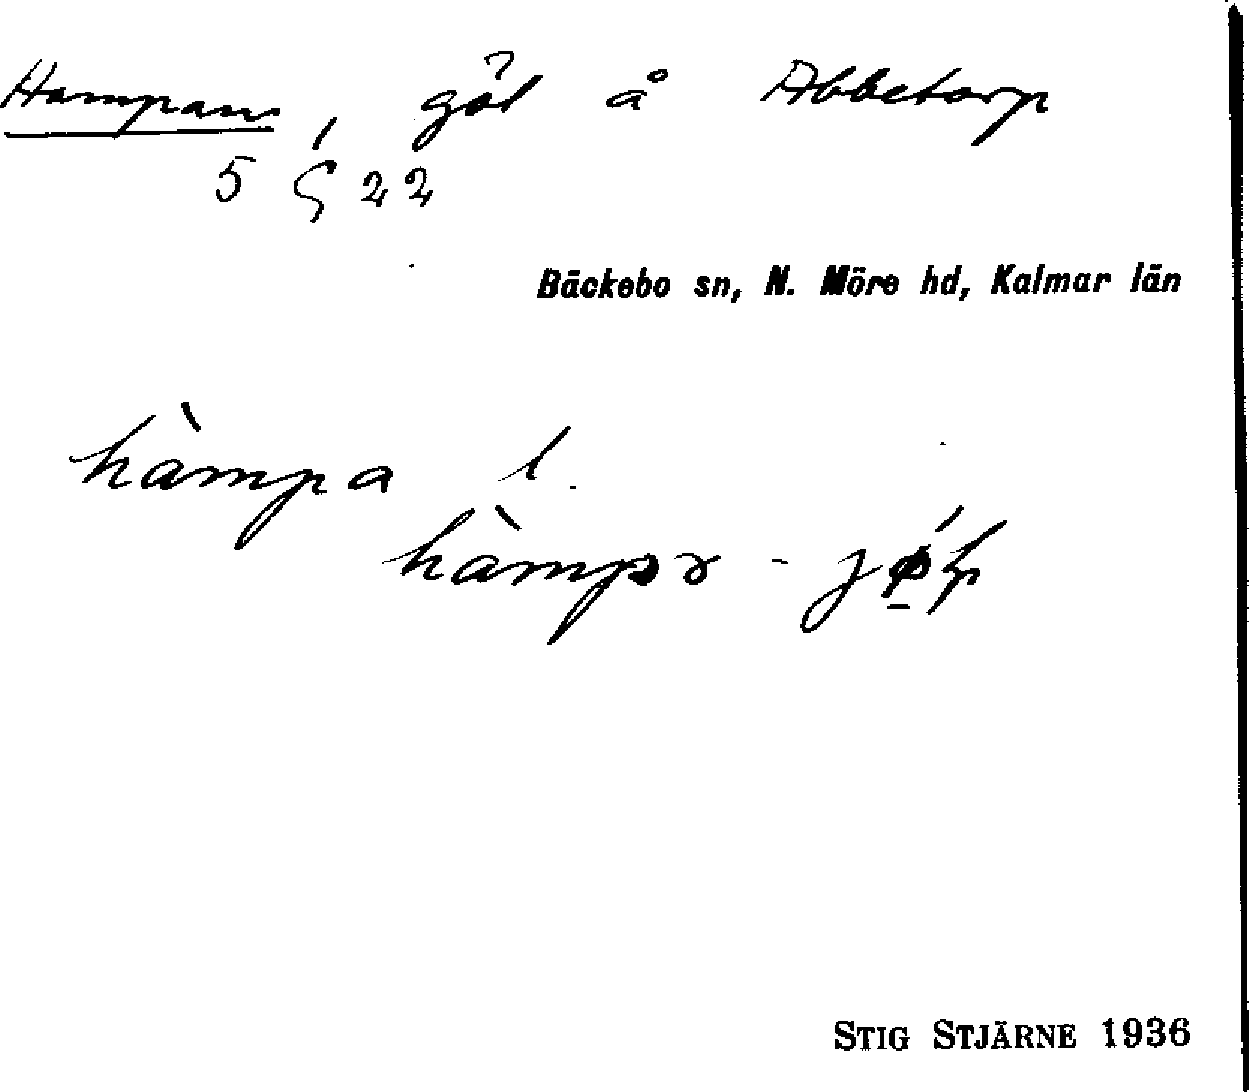 Hampan, göl å Abbetorp
5 G 22
Bäckebo sn, N. Möre hd, Kalmar län
hàmpa l.
STIG STJÄRNE 1936